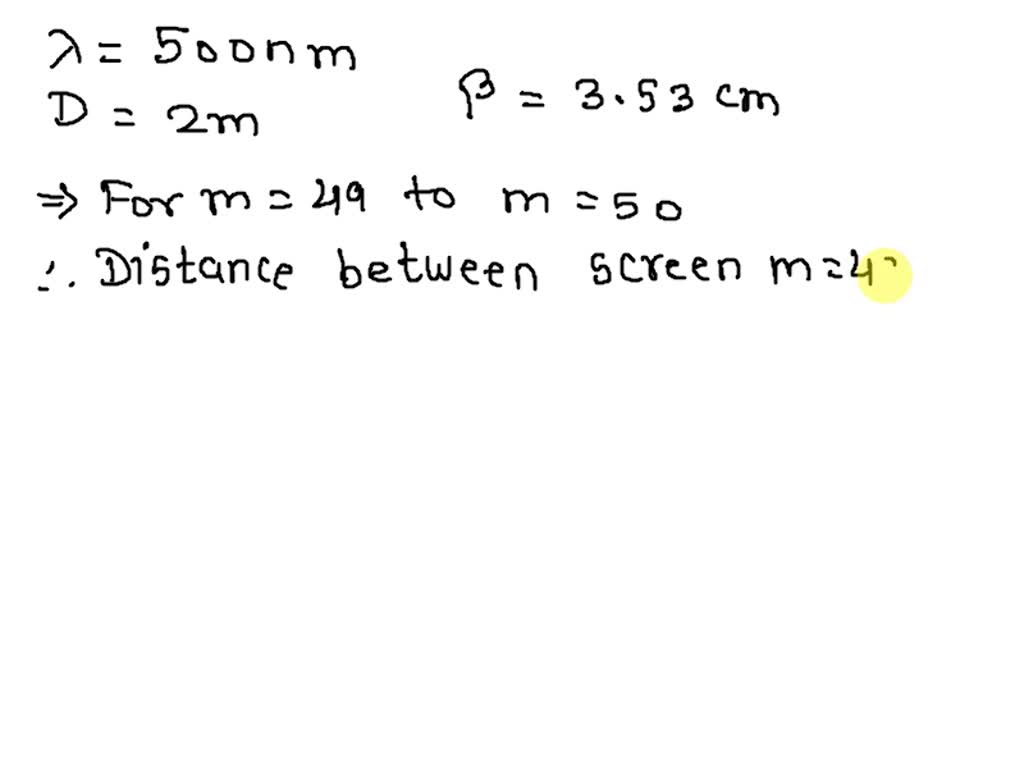 λ = 500nm
D = 2m
β = 3.53 cm
⇒ For m = 49 to m = 50
∴ Distance between screen m=4